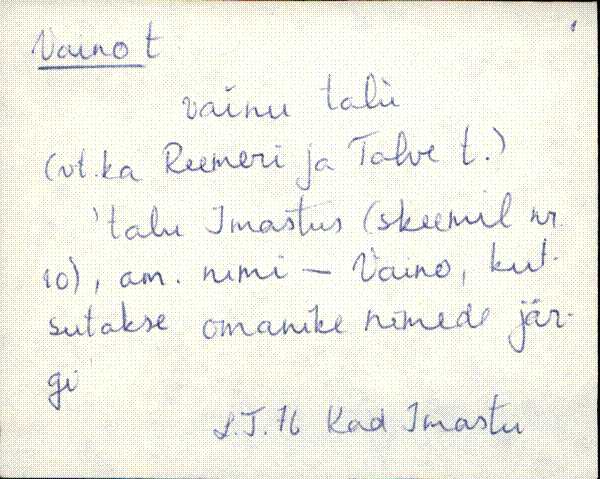 Vaino t
vainu talu
(vt. ka Reemeri ja Talve t.)
'talu Imastus (skeemil nr.
10), am. nimi – Vaino, kut-
sutakse omanike nimede jär-
gi
L.T. 76 Kad Imastu